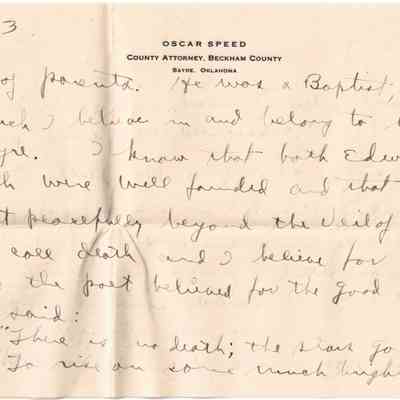 3
OSCAR SPEED
COUNTY ATTORNEY, BECKHAM COUNTY
SAYRE, OKLAHOMA
of parents. He was a Baptist,
I believe in and belong to
yre. I know that both Edw
th were well founded and that
t peacefully beyond the Veil of
call death and I believe for
the poet believed for the good
said:
"There is no death; the stars go
To rise on some much brigh